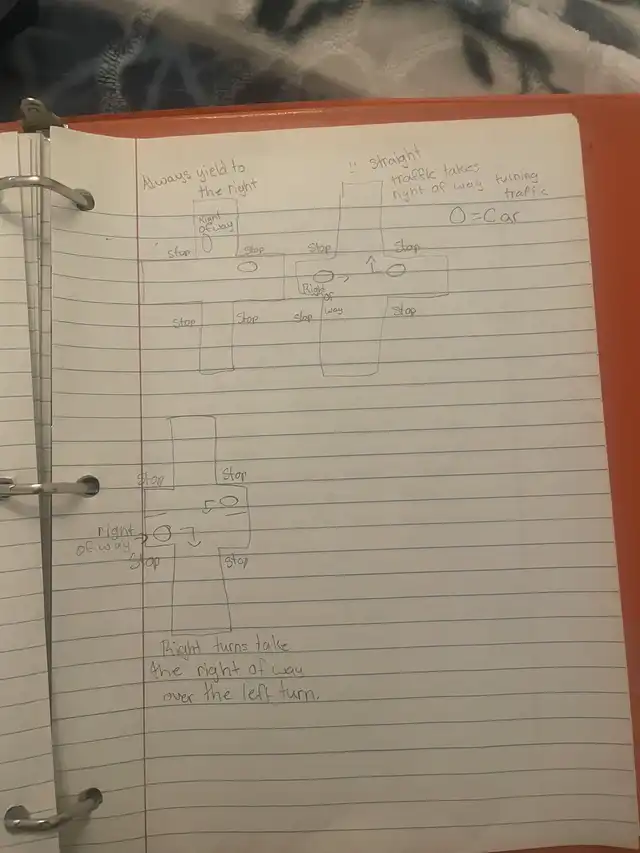 Always yield to
the right
Right
of way
Stop
Stop
Stop
Stop
!! straight
traffic takes
right of way turning
traffic
O = Car
Stop
Stop
Right
of
way
stop
Stop
Stop
Stop
right
of way
Stop
Stop
Right turns take
the right of way
over the left turn.